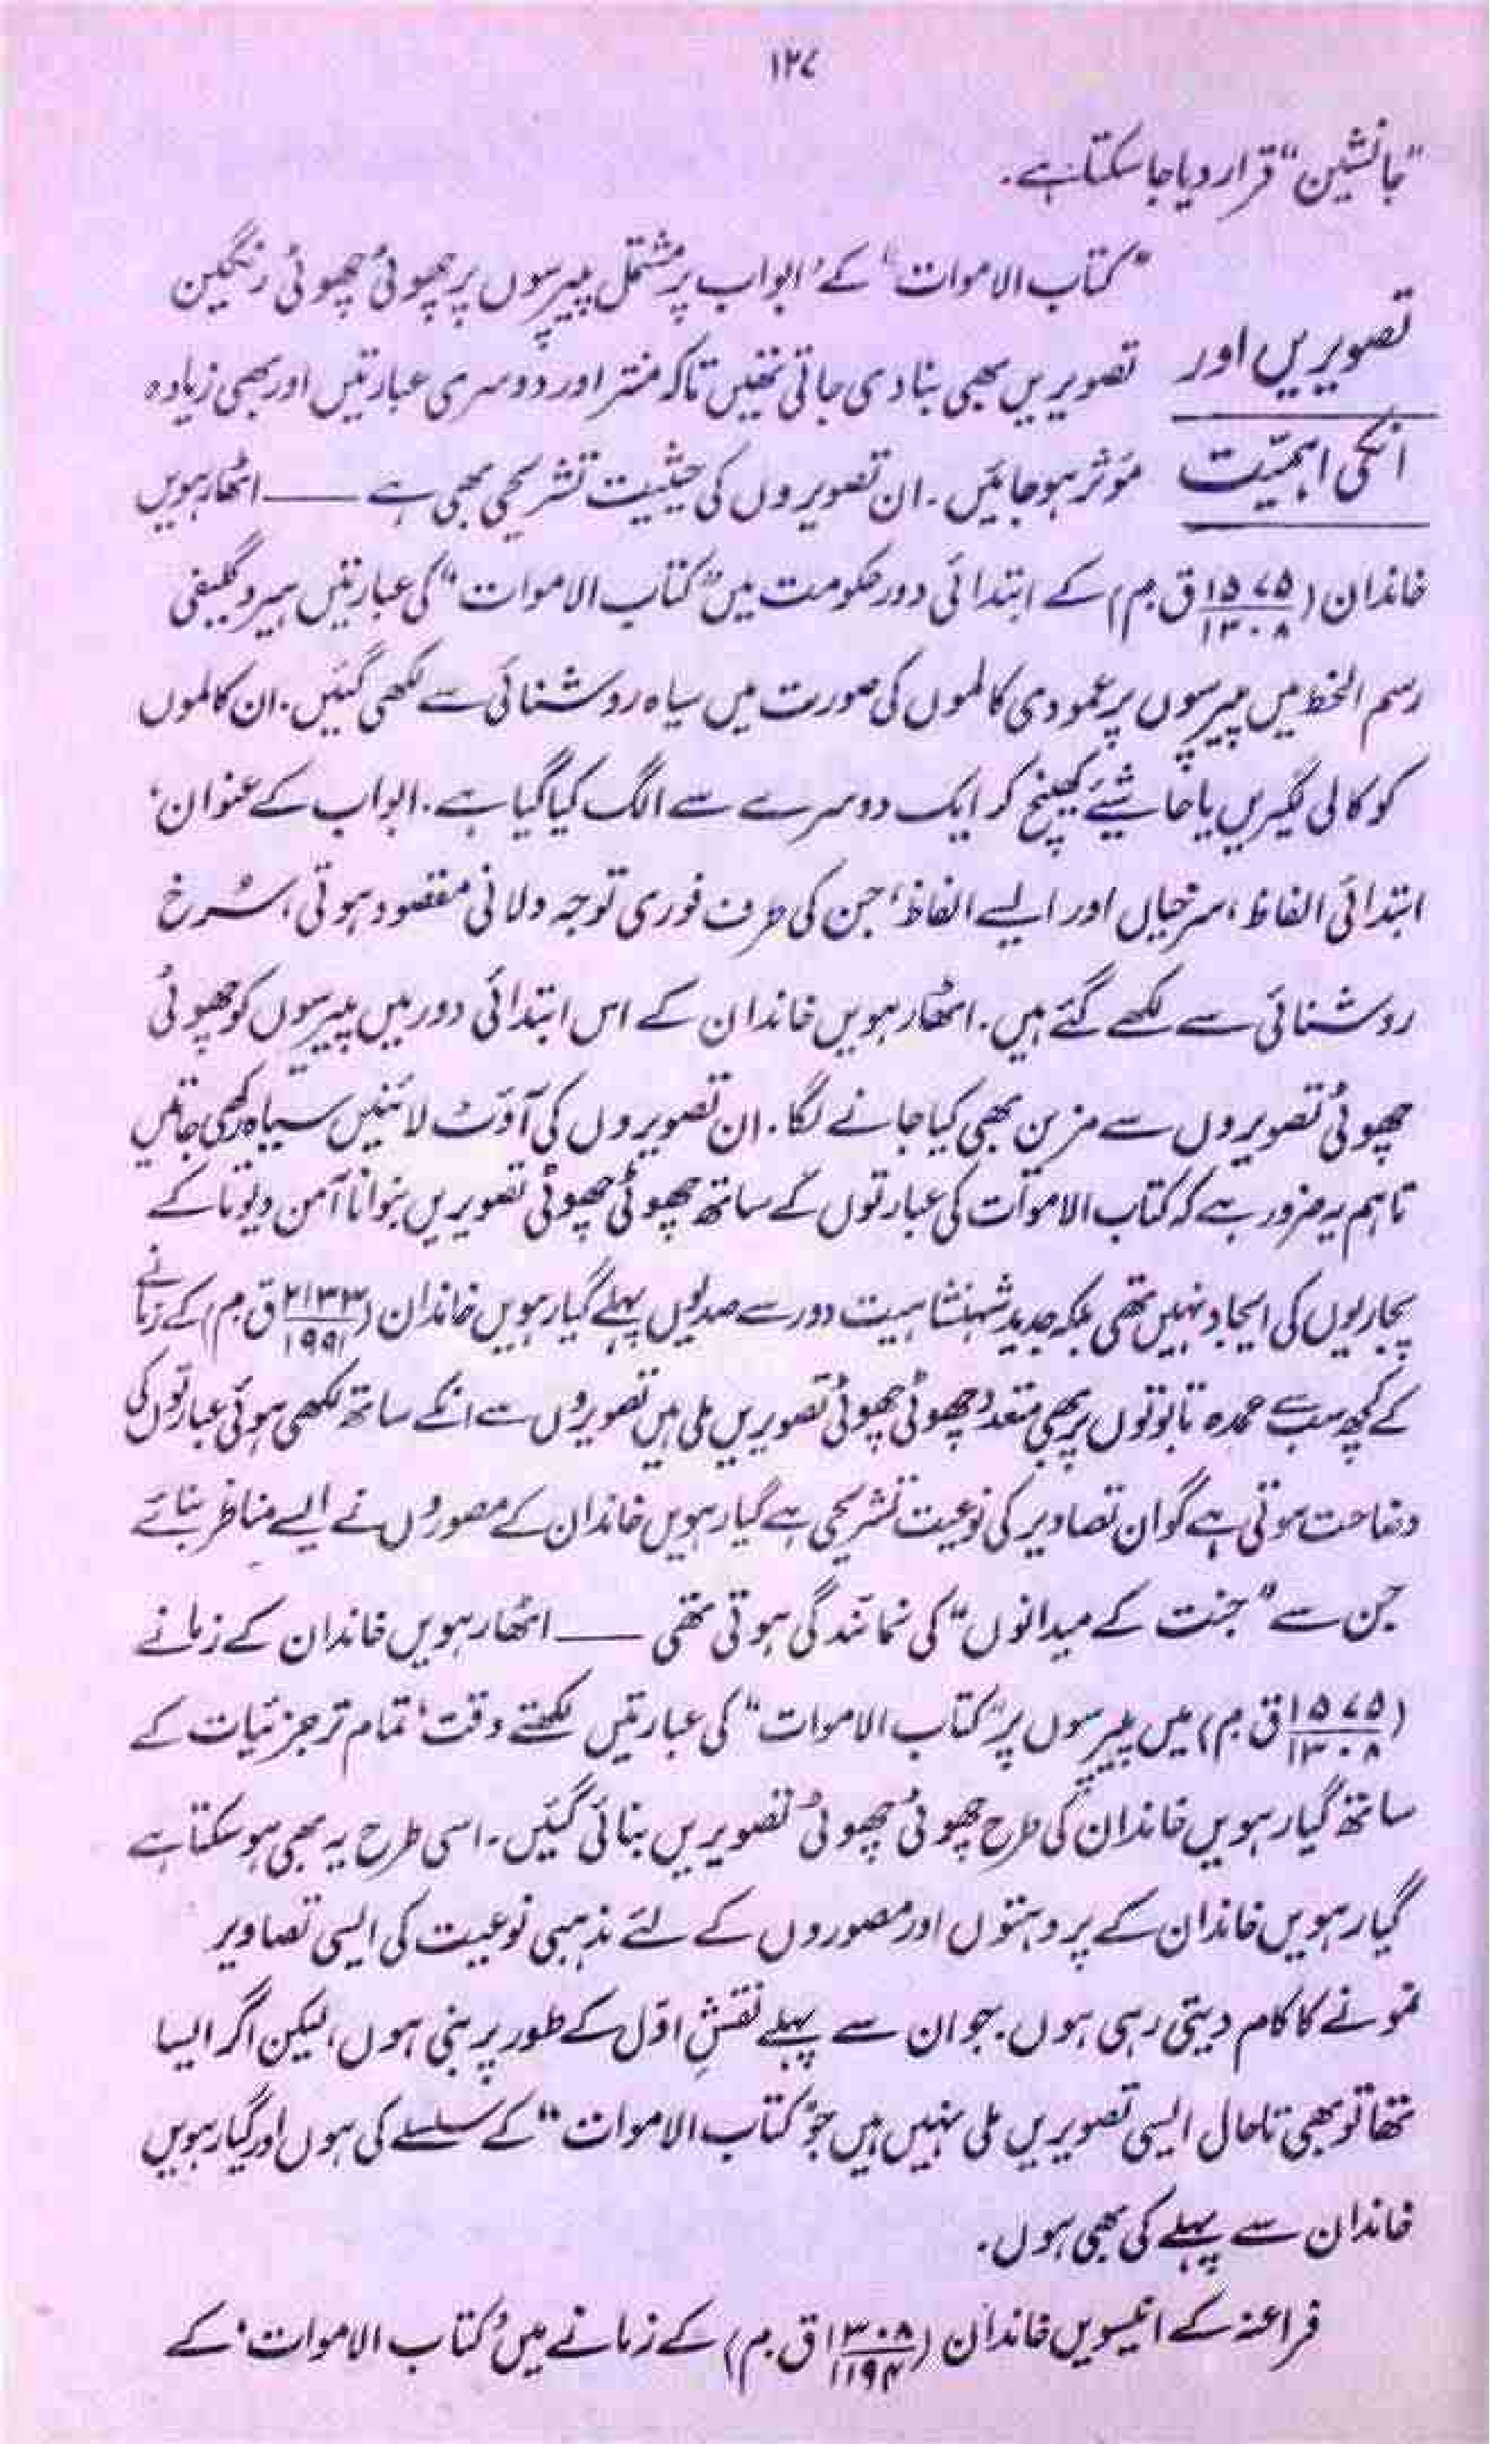 ۱۲۷
"جانشین" قرار دیا جا سکتا ہے۔
تصویریں اور
انکی اہمیّت
"کتاب الاموات" کے ابواب پر مشتمل پیپرسوں پر چھوٹی چھوٹی رنگین
تصویریں بھی بنا دی جاتی تھیں تاکہ منتر اور دوسری عبارتیں اور بھی زیادہ
مؤثر ہو جائیں۔ ان تصویروں کی حیثیت تشریحی بھی ہے —— اٹھارہویں
خاندان (۱۵۷۵/۱۳۰۸ ق۔م) کے ابتدائی دور حکومت میں "کتاب الاموات" کی عبارتیں ہیروگلیفی
رسم الخط میں پیپرسوں پر عمودی کالموں کی صورت میں سیاہ روشنائی سے لکھی گئیں۔ ان کالموں
کو کالی لکیریں یا حاشیئے کھینچ کر ایک دوسرے سے الگ کیا گیا ہے۔ ابواب کے عنوان،
ابتدائی الفاظ، سرخیاں اور ایسے الفاظ، جن کی طرف فوری توجہ دلانی مقصود ہوتی، سُرخ
روشنائی سے لکھے گئے ہیں۔ اٹھارہویں خاندان کے اس ابتدائی دور میں پیپرسوں کو چھوٹی
چھوٹی تصویروں سے مزین بھی کیا جانے لگا۔ ان تصویروں کی آؤٹ لائنیں سیاہ رکھی جاتیں
تاہم یہ ضرور ہے کہ کتاب الاموات کی عبارتوں کے ساتھ چھوٹی چھوٹی تصویریں بنوانا آمن دیوتا کے
پجاریوں کی ایجاد نہیں تھی بلکہ جدید شہنشاہیت دور سے صدیوں پہلے گیارہویں خاندان (۲۱۳۳/۱۹۹۱ ق۔م) کے زمانے
کے کچھ سب سے عمدہ تابوتوں پر بھی متعدد چھوٹی چھوٹی تصویریں ملی ہیں تصویروں سے انکے ساتھ لکھی ہوئی عبارتوں کی
وضاحت ہوتی ہے گو ان تصاویر کی نوعیت تشریحی ہے گیارہویں خاندان کے مصوروں نے ایسے مناظر بنائے
جن سے "جنت کے میدانوں" کی نمائندگی ہوتی تھی —— اٹھارہویں خاندان کے زمانے
(۱۵۷۵/۱۳۰۸ ق۔م) میں پیپرسوں پر "کتاب الاموات" کی عبارتیں لکھتے وقت، تمام تر جزئیات کے
ساتھ گیارہویں خاندان کی طرح چھوٹی چھوٹی تصویریں بنائی گئیں۔ اسی طرح یہ بھی ہو سکتا ہے
گیارہویں خاندان کے پروہتوں اور مصوروں کے لئے مذہبی نوعیت کی ایسی تصاویر
نمونے کا کام دیتی رہی ہوں۔ جو ان سے پہلے نقشِ اوّل کے طور پر بنی ہوں، لیکن اگر ایسا
تھا تو بھی تاحال ایسی تصویریں ملی نہیں ہیں جو "کتاب الاموات" کے سلسلے کی ہوں اور گیارہویں
خاندان سے پہلے کی بھی ہوں۔
فراعنہ کے انیسویں خاندان (۱۳۰۸/۱۱۹۴ ق۔م) کے زمانے میں "کتاب الاموات" کے